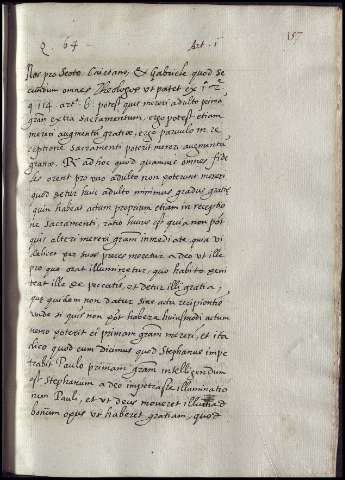 157
Q. 64 Art. 1
Nar pro Scoto. Caietano, & Gabriele quod se
cundum omnes Theologos ut patet ex 1ª 2ę
q 114 artº. 6. potest quis mereri adulto primã
gram extra sacramentum, ergo potest etiam
mereri augmentũ gratiæ, ergo parvulo in re
ceptione sacramenti poterit mereri augmentũ
gratiæ. Rr ad hoc quod quamvis omnes fide
les orent pro uno adulto non poterunt mereri
quod detur huic adulto minimus gradus gratiæ
quin habeat actum proprium etiam in receptio
ne sacramenti, ratio huius est quia non pot
quis alteri mereri gram inmediate, quia vi
delicet per suas preces meretur a deo ut ille
pro quo orat illuminetur, quo habito peni
teat ille de peccatis, et detur illi gratia,
que quidem non datur sine actu recipientis
unde si quis non pot habere huiusmodi actum
nemo poterit ei primam gram mereri, et ita
dico quod cum Dicimus quod Stephanus impe
trabit Paulo primam gram intelligendum
est Stephanum a deo impetrasse illuminatio
nem Pauli, et ut deus moveret illum ad
bonum opus ut haberet gratiam, quod